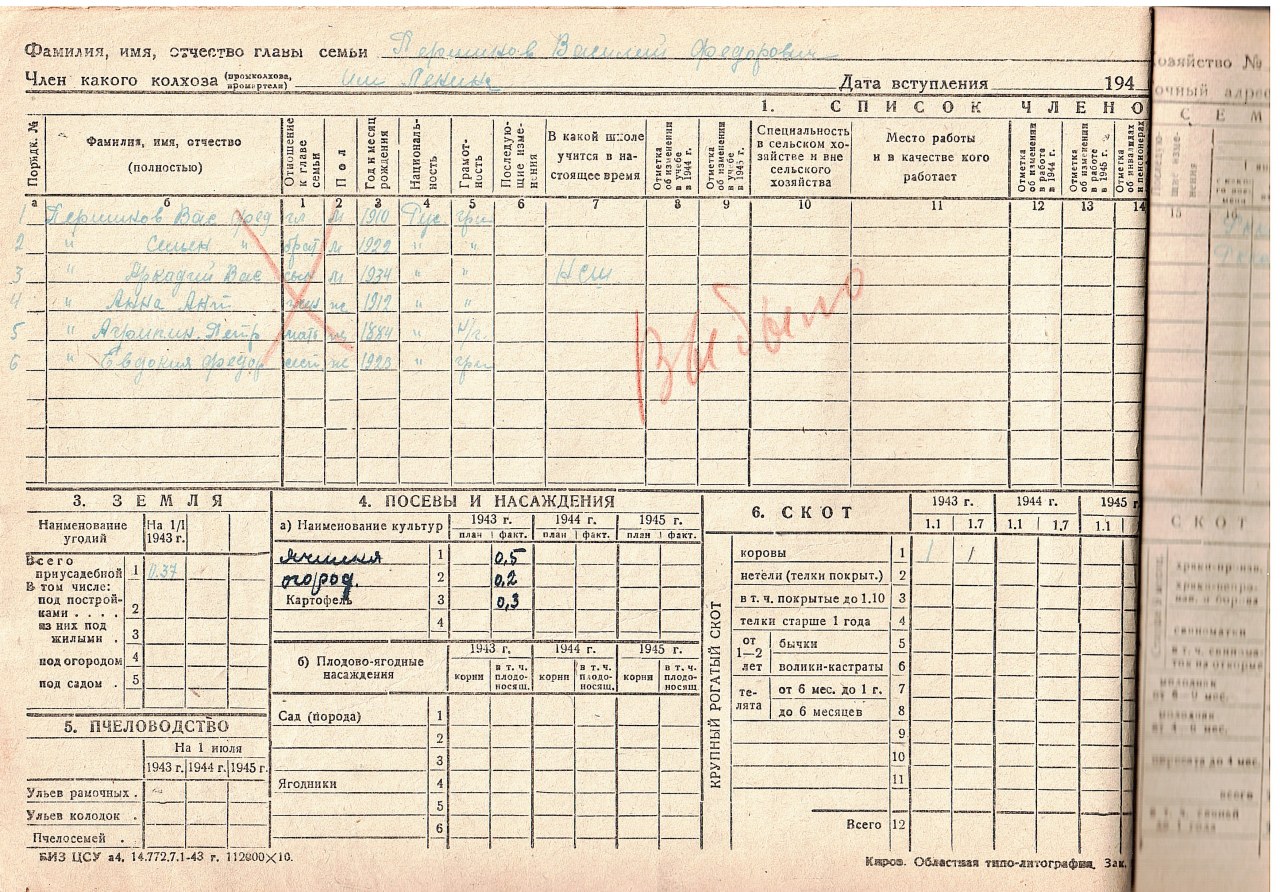 Фамилия, имя, отчество главы семьи Першинов Василий Федорович
Член какого колхоза (промколхоза, промартели) им Ленина Дата вступления 194
1. СПИСОК ЧЛЕНО
Порядк. № Фамилия, имя, отчество (полностью) Отношение к главе семьи Пол Год и месяц рождения Националь-ность Грамот-ность Последую-щие изме-нения В какой школе учится в на-стоящее время Отметка об изменении в учебе в 1944 г. Отметка об изменении в учебе в 1945 г. Специальность в сельском хо-зяйстве и вне сельского хозяйства Место работы и в качестве кого работает Отметка об изменении в работе в 1944 г. Отметка об изменении в работе в 1945 г. Отметка об инвалидах и пенсионерах
а б 1 2 3 4 5 6 7 8 9 10 11 12 13 14
1 Першинов Вас Фед гл м 1910 Рус гр
2 " Семен " брат м 1922 " "
3 " Аркадий Вас сын м 1934 " "
4 " Анна Ант ж 1912 " "
5 " Агрипин. Петр мать ж 1884 " н/г.
6 " Евдокия Федор ж 1923 " гр
Выбыло
3. ЗЕМЛЯ
Наименование угодий На 1/I 1943 г.
Всего приусадебной 1 0.37
В том числе:
под построй-ками . . . . 2
из них под жилыми . 3
под огородом 4
под садом . 5
5. ПЧЕЛОВОДСТВО
На 1 июля
1943 г. 1944 г. 1945 г.
Ульев рамочных .
Ульев колодок .
Пчелосемей .
4. ПОСЕВЫ И НАСАЖДЕНИЯ
а) Наименование культур 1943 г. 1944 г. 1945 г.
план факт. план факт. план факт.
1 0,5
огород. 2 0,2
Картофель 3 0,3
4
б) Плодово-ягодные насаждения 1943 г. 1944 г. 1945 г.
корни в т. ч. плодо-носящ. корни в т. ч. плодо-носящ. корни в т. ч. плодо-носящ.
Сад (порода) 1
2
3
Ягодники 4
5
6
6. СКОТ 1943 г. 1944 г. 1945 г
1.1 1.7 1.1 1,7 1.1
КРУПНЫЙ РОГАТЫЙ СКОТ
коровы 1 1 1
нетели (телки покрыт.) 2
в т. ч. покрытые до 1.10 3
телки старше 1 года 4
от 1—2 лет бычки 5
волики-кастраты 6
те-лята от 6 мес. до 1 г. 7
до 6 месяцев 8
9
10
11
Всего 12
БИЗ ЦСУ а4. 14.772.7.1-43 г. 112000×10.
Киров. Областная типо-литография. Зак.
озяйство №
очный адрес
СЕМ
15 16
СКОТ
всего